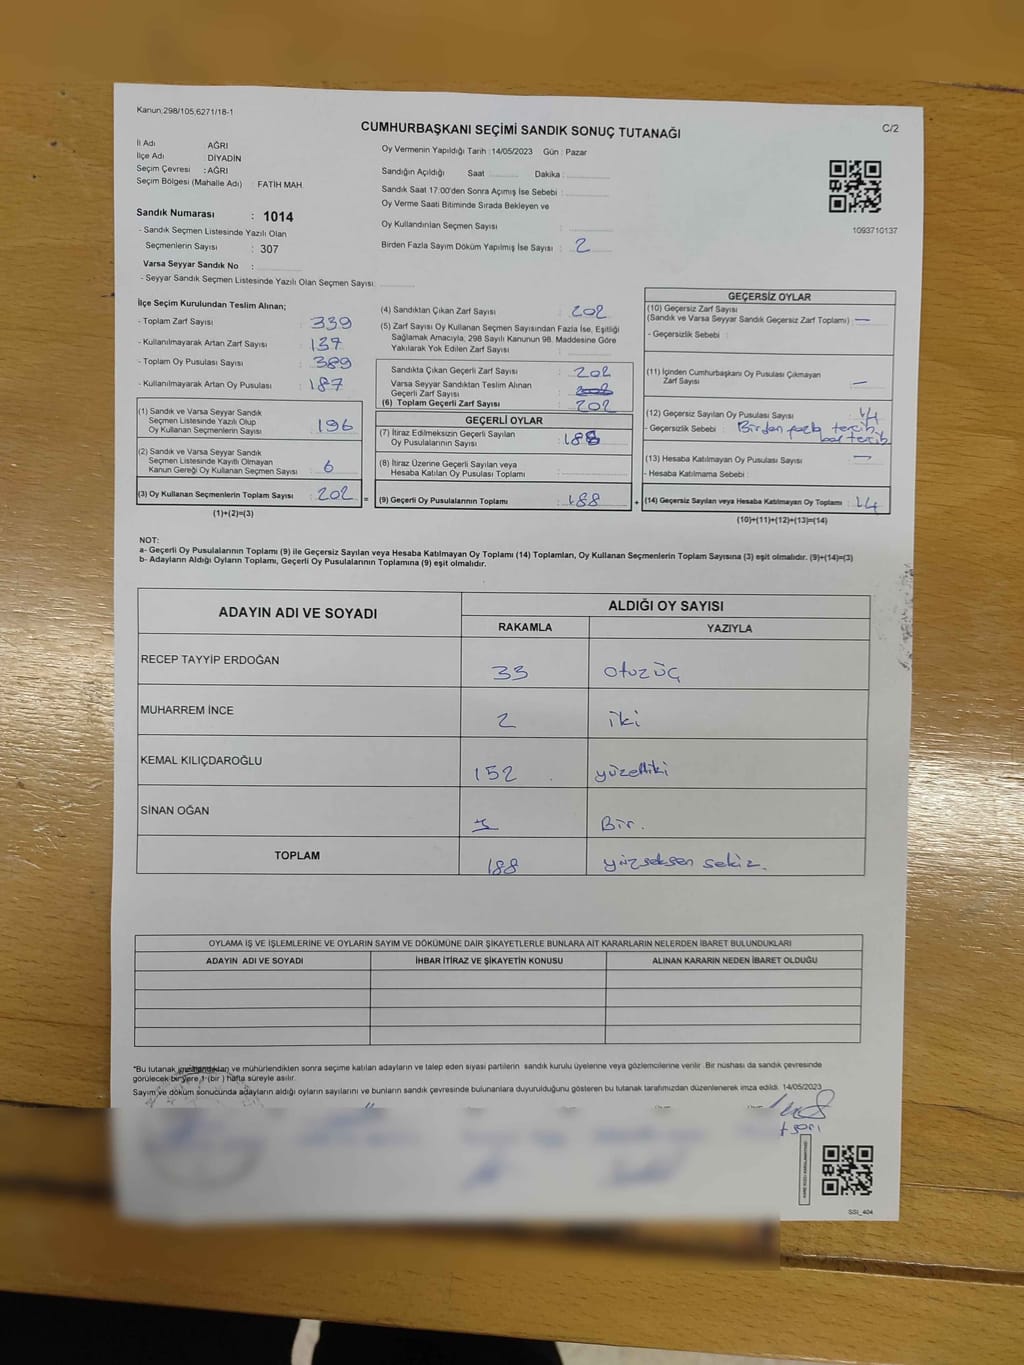 Kanun;298/105,6271/18-1
C/2
CUMHURBAŞKANI SEÇİMİ SANDIK SONUÇ TUTANAĞI
İl Adı : AĞRI
İlçe Adı : DİYADİN
Seçim Çevresi : AĞRI
Seçim Bölgesi (Mahalle Adı) : FATİH MAH.
Oy Vermenin Yapıldığı Tarih :14/05/2023 Gün : Pazar
Sandığın Açıldığı Saat Dakika :
Sandık Saat 17:00'den Sonra Açımış İse Sebebi :
Oy Verme Saati Bitiminde Sırada Bekleyen ve
Oy Kullandırılan Seçmen Sayısı :
Birden Fazla Sayım Döküm Yapılmış İse Sayısı : 2
1093710137
Sandık Numarası : 1014
- Sandık Seçmen Listesinde Yazılı Olan
Seçmenlerin Sayısı : 307
Varsa Seyyar Sandık No :
- Seyyar Sandık Seçmen Listesinde Yazılı Olan Seçmen Sayısı:
İlçe Seçim Kurulundan Teslim Alınan;
- Toplam Zarf Sayısı : 339
- Kullanılmayarak Artan Zarf Sayısı : 137
- Toplam Oy Pusulası Sayısı : 389
- Kullanılmayarak Artan Oy Pusulası : 187
(1) Sandık ve Varsa Seyyar Sandık
Seçmen Listesinde Yazılı Olup
Oy Kullanan Seçmenlerin Sayısı : 196
(2) Sandık ve Varsa Seyyar Sandık
Seçmen Listesinde Kayıtlı Olmayan
Kanun Gereği Oy Kullanan Seçmen Sayısı : 6
(3) Oy Kullanan Seçmenlerin Toplam Sayısı : 202
(1)+(2)=(3)
(4) Sandıktan Çıkan Zarf Sayısı : 202
(5) Zarf Sayısı Oy Kullanan Seçmen Sayısından Fazla İse, Eşitliği
Sağlamak Amacıyla, 298 Sayılı Kanunun 98. Maddesine Göre
Yakılarak Yok Edilen Zarf Sayısı :
Sandıkta Çıkan Geçerli Zarf Sayısı : 202
Varsa Seyyar Sandıktan Teslim Alınan
Geçerli Zarf Sayısı :
(6) Toplam Geçerli Zarf Sayısı : 202
GEÇERLİ OYLAR
(7) İtiraz Edilmeksizin Geçerli Sayılan
Oy Pusulalarının Sayısı : 188
(8) İtiraz Üzerine Geçerli Sayılan veya
Hesaba Katılan Oy Pusulası Toplamı :
= (9) Geçerli Oy Pusulalarının Toplamı : 188
GEÇERSİZ OYLAR
(10) Geçersiz Zarf Sayısı
(Sandık ve Varsa Seyyar Sandık Geçersiz Zarf Toplamı) : —
- Geçersizlik Sebebi :
(11) İçinden Cumhurbaşkanı Oy Pusulası Çıkmayan
Zarf Sayısı : —
(12) Geçersiz Sayılan Oy Pusulası Sayısı : 14
- Geçersizlik Sebebi : Birden fazla tercih,
boş tercih
(13) Hesaba Katılmayan Oy Pusulası Sayısı : —
- Hesaba Katılmama Sebebi :
+ (14) Geçersiz Sayılan veya Hesaba Katılmayan Oy Toplamı : 14
(10)+(11)+(12)+(13)=(14)
NOT:
a- Geçerli Oy Pusulalarının Toplamı (9) ile Geçersiz Sayılan veya Hesaba Katılmayan Oy Toplamı (14) Toplamları, Oy Kullanan Seçmenlerin Toplam Sayısına (3) eşit olmalıdır. (9)+(14)=(3)
b- Adayların Aldığı Oyların Toplamı, Geçerli Oy Pusulalarının Toplamına (9) eşit olmalıdır.
ADAYIN ADI VE SOYADI
ALDIĞI OY SAYISI
RAKAMLA YAZIYLA
RECEP TAYYİP ERDOĞAN 33 otuzüç
MUHARREM İNCE 2 iki
KEMAL KILIÇDAROĞLU 152 yüzelliki
SİNAN OĞAN 1 Bir.
TOPLAM 188 yüzseksen sekiz.
OYLAMA İŞ VE İŞLEMLERİNE VE OYLARIN SAYIM VE DÖKÜMÜNE DAİR ŞİKAYETLERLE BUNLARA AİT KARARLARIN NELERDEN İBARET BULUNDUKLARI
ADAYIN ADI VE SOYADI İHBAR İTİRAZ VE ŞİKAYETİN KONUSU ALINAN KARARIN NEDEN İBARET OLDUĞU
*Bu tutanak imzalandıktan ve mühürlendikten sonra seçime katılan adayların ve talep eden siyasi partilerin sandık kurulu üyelerine veya gözlemcilerine verilir. Bir nüshası da sandık çevresinde
görülecek bir yere 1 (bir ) hafta süreyle asılır.
Sayım ve döküm sonucunda adayların aldığı oyların sayılarını ve bunların sandık çevresinde bulunanlara duyurulduğunu gösteren bu tutanak tarafımızdan düzenlenerek imza edildi. 14/05/2023
SSİ_404